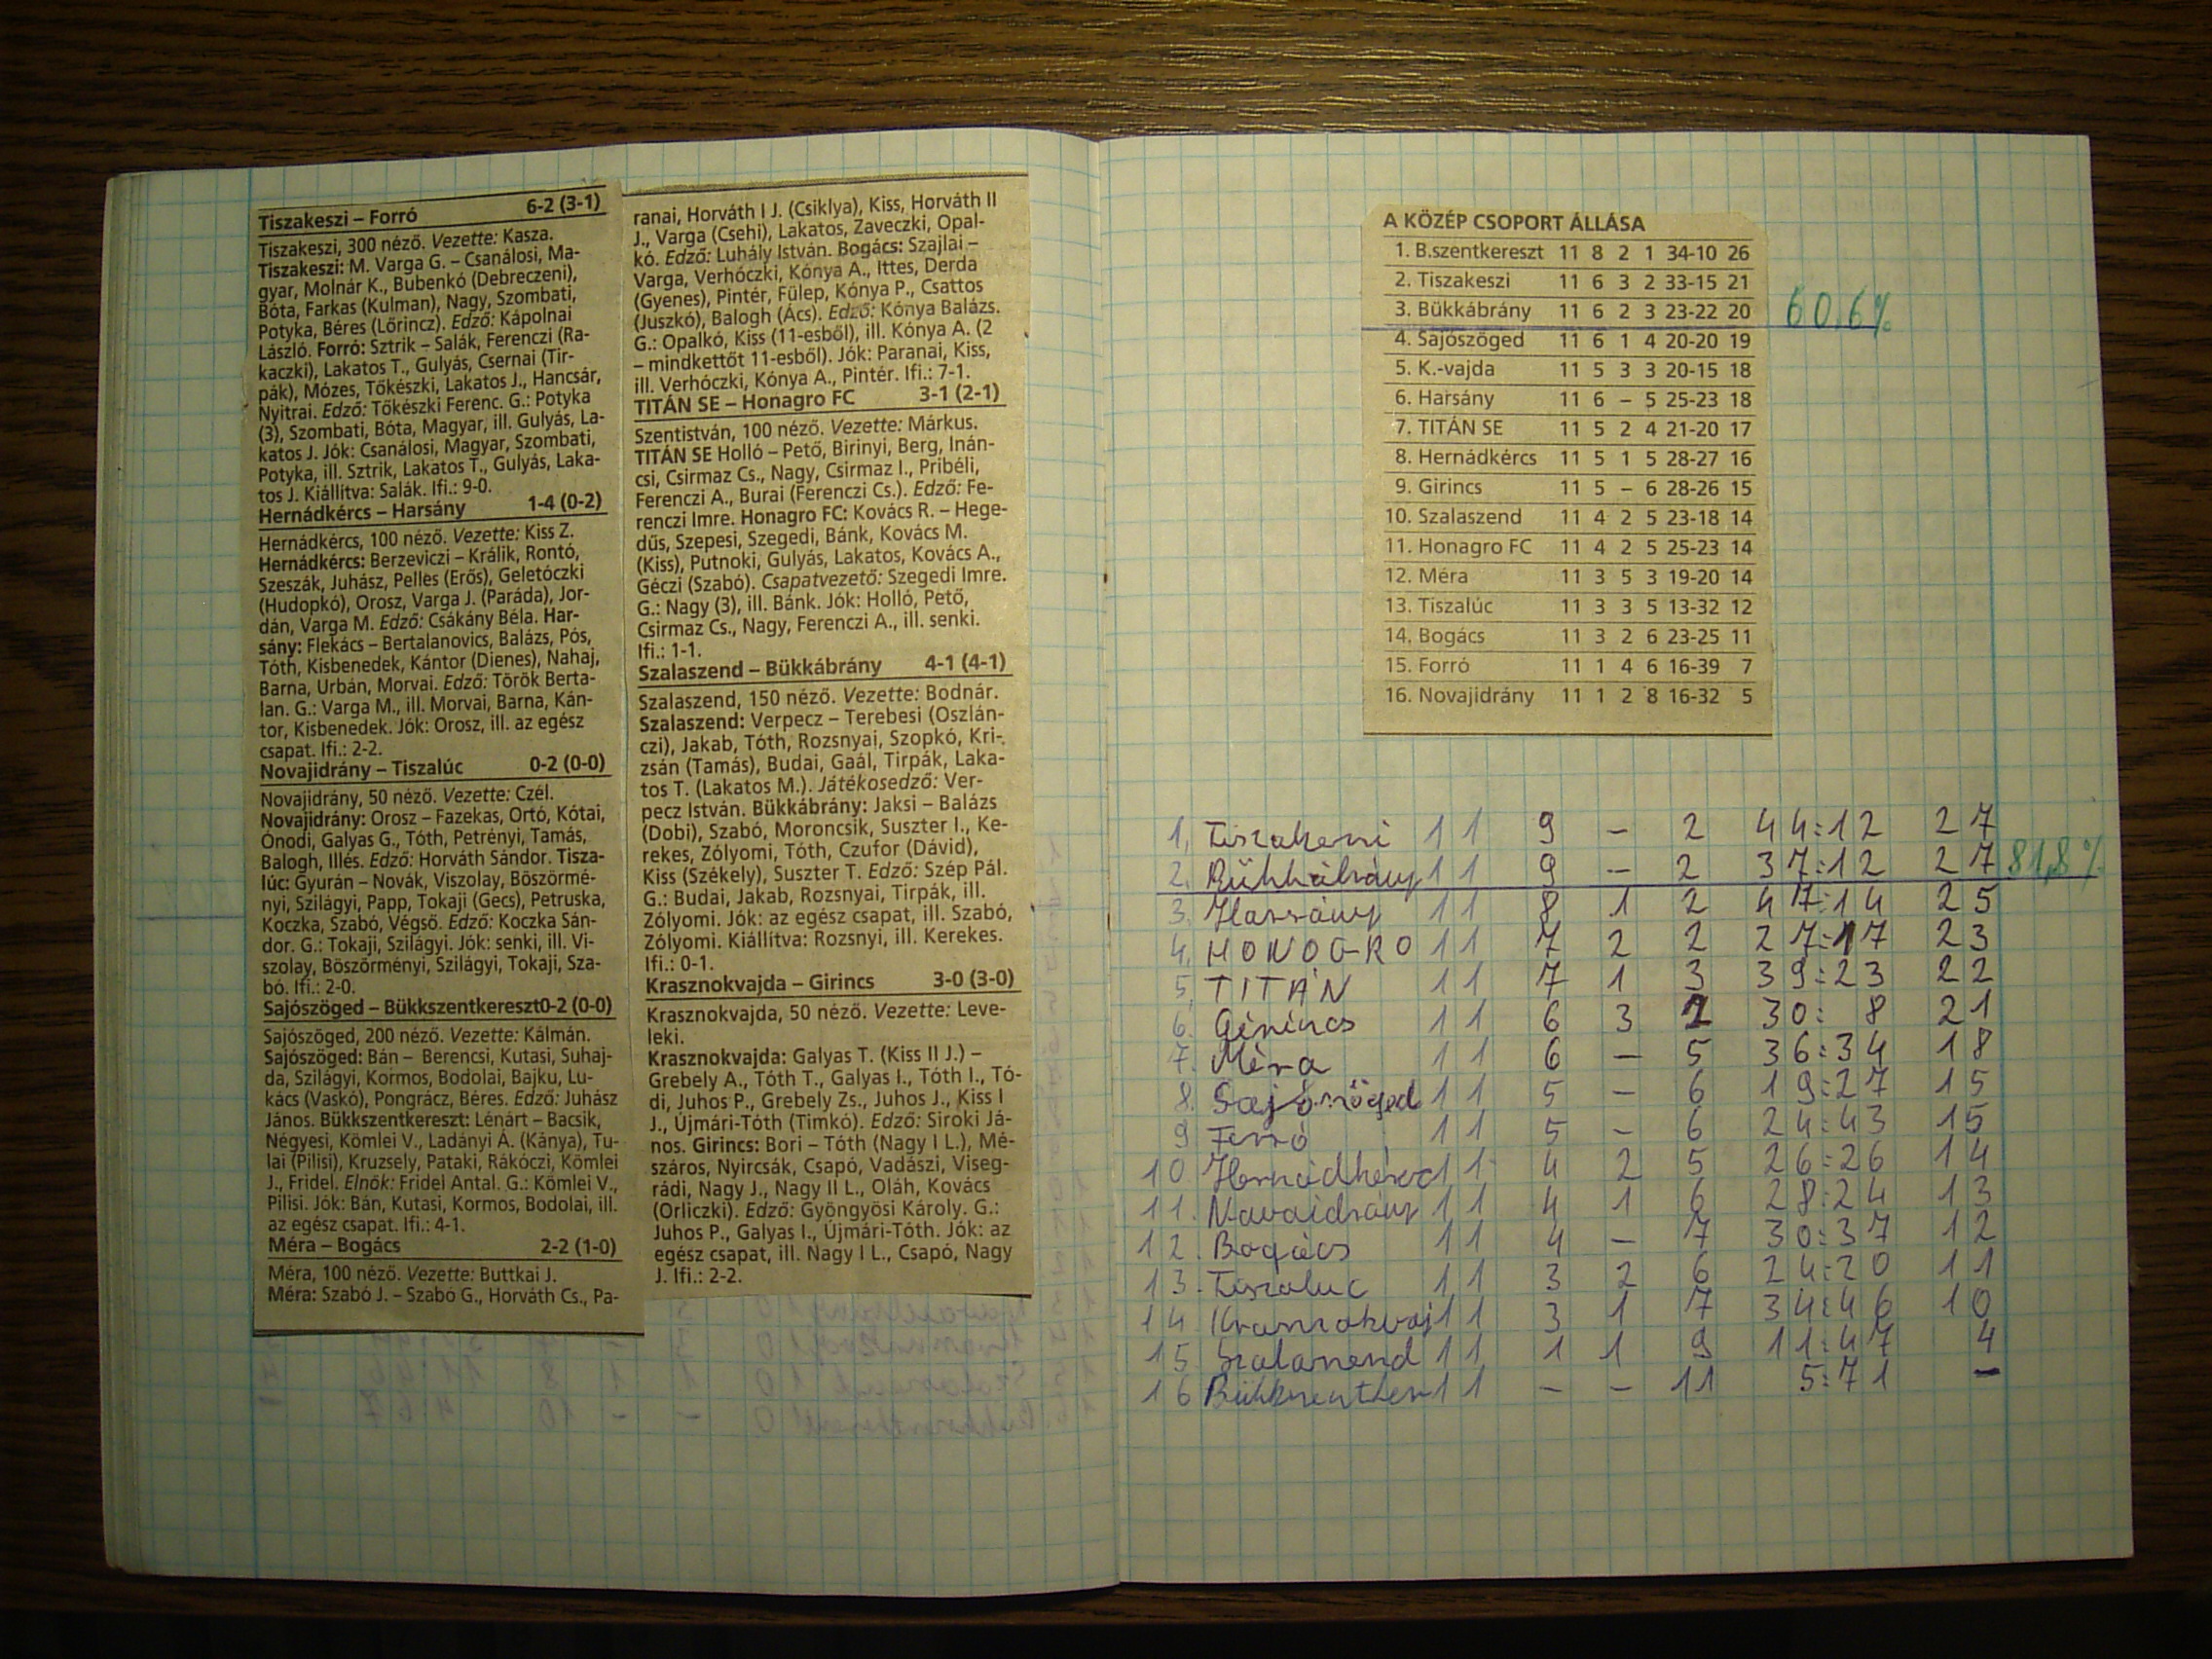 Tiszakeszi – Forró 6-2 (3-1)
Tiszakeszi, 300 néző. Vezette: Kasza.
Tiszakeszi: M. Varga G. – Csanálosi, Ma-
gyar, Molnár K., Bubenkó (Debreczeni),
Bóta, Farkas (Kulman), Nagy, Szombati,
Potyka, Béres (Lőrincz). Edző: Kápolnai
László. Forró: Sztrik – Salák, Ferenczi (Ra-
kaczki), Lakatos T., Gulyás, Csernai (Tir-
pák), Mózes, Tőkészki, Lakatos J., Hancsár,
Nyitrai. Edző: Tőkészki Ferenc. G.: Potyka
(3), Szombati, Bóta, Magyar, ill. Gulyás, La-
katos J. Jók: Csanálosi, Magyar, Szombati,
Potyka, ill. Sztrik, Lakatos T., Gulyás, Laka-
tos J. Kiállítva: Salák. Ifi.: 9-0.
Hernádkércs – Harsány 1-4 (0-2)
Hernádkércs, 100 néző. Vezette: Kiss Z.
Hernádkércs: Berzeviczi – Králik, Rontó,
Szeszák, Juhász, Pelles (Erős), Geletóczki
(Hudopkó), Orosz, Varga J. (Paráda), Jor-
dán, Varga M. Edző: Csákány Béla. Har-
sány: Flekács – Bertalanovics, Balázs, Pós,
Tóth, Kisbenedek, Kántor (Dienes), Nahaj,
Barna, Urbán, Morvai. Edző: Török Berta-
lan. G.: Varga M., ill. Morvai, Barna, Kán-
tor, Kisbenedek. Jók: Orosz, ill. az egész
csapat. Ifi.: 2-2.
Novajidrány – Tiszalúc 0-2 (0-0)
Novajidrány, 50 néző. Vezette: Czél.
Novajidrány: Orosz – Fazekas, Ortó, Kótai,
Ónodi, Galyas G., Tóth, Petrényi, Tamás,
Balogh, Illés. Edző: Horváth Sándor. Tisza-
lúc: Gyurán – Novák, Viszolay, Böszörmé-
nyi, Szilágyi, Papp, Tokaji (Gecs), Petruska,
Koczka, Szabó, Végső. Edző: Koczka Sán-
dor. G.: Tokaji, Szilágyi. Jók: senki, ill. Vi-
szolay, Böszörményi, Szilágyi, Tokaji, Sza-
bó. Ifi.: 2-0.
Sajószöged – Bükkszentkereszt0-2 (0-0)
Sajószöged, 200 néző. Vezette: Kálmán.
Sajószöged: Bán – Berencsi, Kutasi, Suhaj-
da, Szilágyi, Kormos, Bodolai, Bajku, Lu-
kács (Vaskó), Pongrácz, Béres. Edző: Juhász
János. Bükkszentkereszt: Lénárt – Bacsik,
Négyesi, Kömlei V., Ladányi Á. (Kánya), Tu-
lai (Pilisi), Kruzsely, Pataki, Rákóczi, Kömlei
J., Fridel. Elnök: Fridel Antal. G.: Kömlei V.,
Pilisi. Jók: Bán, Kutasi, Kormos, Bodolai, ill.
az egész csapat. Ifi.: 4-1.
Méra – Bogács 2-2 (1-0)
Méra, 100 néző. Vezette: Buttkai J.
Méra: Szabó J. – Szabó G., Horváth Cs., Pa-
ranai, Horváth I J. (Csiklya), Kiss, Horváth II
J., Varga (Csehi), Lakatos, Zaveczki, Opal-
kó. Edző: Luhály István. Bogács: Szajlai –
Varga, Verhóczki, Kónya A., Ittes, Derda
(Gyenes), Pintér, Fülep, Kónya P., Csattos
(Juszkó), Balogh (Ács). Edző: Kónya Balázs.
G.: Opalkó, Kiss (11-esből), ill. Kónya A. (2
– mindkettőt 11-esből). Jók: Paranai, Kiss,
ill. Verhóczki, Kónya A., Pintér. Ifi.: 7-1.
TITÁN SE – Honagro FC 3-1 (2-1)
Szentistván, 100 néző. Vezette: Márkus.
TITÁN SE Holló – Pető, Birinyi, Berg, Inán-
csi, Csirmaz Cs., Nagy, Csirmaz I., Pribéli,
Ferenczi A., Burai (Ferenczi Cs.). Edző: Fe-
renczi Imre. Honagro FC: Kovács R. – Hege-
dűs, Szepesi, Szegedi, Bánk, Kovács M.
(Kiss), Putnoki, Gulyás, Lakatos, Kovács A.,
Géczi (Szabó). Csapatvezető: Szegedi Imre.
G.: Nagy (3), ill. Bánk. Jók: Holló, Pető,
Csirmaz Cs., Nagy, Ferenczi A., ill. senki.
Ifi.: 1-1.
Szalaszend – Bükkábrány 4-1 (4-1)
Szalaszend, 150 néző. Vezette: Bodnár.
Szalaszend: Verpecz – Terebesi (Oszlán-
czi), Jakab, Tóth, Rozsnyai, Szopkó, Kri-
zsán (Tamás), Budai, Gaál, Tirpák, Laka-
tos T. (Lakatos M.). Játékosedző: Ver-
pecz István. Bükkábrány: Jaksi – Balázs
(Dobi), Szabó, Moroncsik, Suszter I., Ke-
rekes, Zólyomi, Tóth, Czufor (Dávid),
Kiss (Székely), Suszter T. Edző: Szép Pál.
G.: Budai, Jakab, Rozsnyai, Tirpák, ill.
Zólyomi. Jók: az egész csapat, ill. Szabó,
Zólyomi. Kiállítva: Rozsnyi, ill. Kerekes.
Ifi.: 0-1.
Krasznokvajda – Girincs 3-0 (3-0)
Krasznokvajda, 50 néző. Vezette: Leve-
leki.
Krasznokvajda: Galyas T. (Kiss II J.) –
Grebely A., Tóth T., Galyas I., Tóth I., Tó-
di, Juhos P., Grebely Zs., Juhos J., Kiss I
J., Újmári-Tóth (Timkó). Edző: Siroki Já-
nos. Girincs: Bori – Tóth (Nagy I L.), Mé-
száros, Nyircsák, Csapó, Vadászi, Viseg-
rádi, Nagy J., Nagy II L., Oláh, Kovács
(Orliczki). Edző: Gyöngyösi Károly. G.:
Juhos P., Galyas I., Újmári-Tóth. Jók: az
egész csapat, ill. Nagy I L., Csapó, Nagy
J. Ifi.: 2-2.
A KÖZÉP CSOPORT ÁLLÁSA
1. B.szentkereszt 11 8 2 1 34-10 26
2. Tiszakeszi 11 6 3 2 33-15 21
3. Bükkábrány 11 6 2 3 23-22 20 60,6%
4. Sajószöged 11 6 1 4 20-20 19
5. K.-vajda 11 5 3 3 20-15 18
6. Harsány 11 6 – 5 25-23 18
7. TITÁN SE 11 5 2 4 21-20 17
8. Hernádkércs 11 5 1 5 28-27 16
9. Girincs 11 5 – 6 28-26 15
10. Szalaszend 11 4 2 5 23-18 14
11. Honagro FC 11 4 2 5 25-23 14
12. Méra 11 3 5 3 19-20 14
13. Tiszalúc 11 3 3 5 13-32 12
14. Bogács 11 3 2 6 23-25 11
15. Forró 11 1 4 6 16-39 7
16. Novajidrány 11 1 2 8 16-32 5
1. Tiszakeszi 11 9 – 2 44:12 27
2. Bükkábrány 11 9 – 2 37:12 27 81,8%
3. Harsány 11 8 1 2 47:14 25
4. HONOGRO 11 7 2 2 27:17 23
5. TITÁN 11 7 1 3 39:23 22
6. Girincs 11 6 3 2 30:8 21
7. Méra 11 6 – 5 36:34 18
8. Sajószöged 11 5 – 6 19:27 15
9 Forró 11 5 – 6 24:43 15
10. Hernádkércs 11 4 2 5 26:26 14
11. Novaidrány 11 4 1 6 28:24 13
12. Bogács 11 4 – 7 30:37 12
13. Tiszaluc 11 3 2 6 24:20 11
14 Krasznokvaj 11 3 1 7 34:46 10
15 Szalaszend 11 1 1 9 11:47 4
16 Bükkszentker 11 – – 11 5:71 –